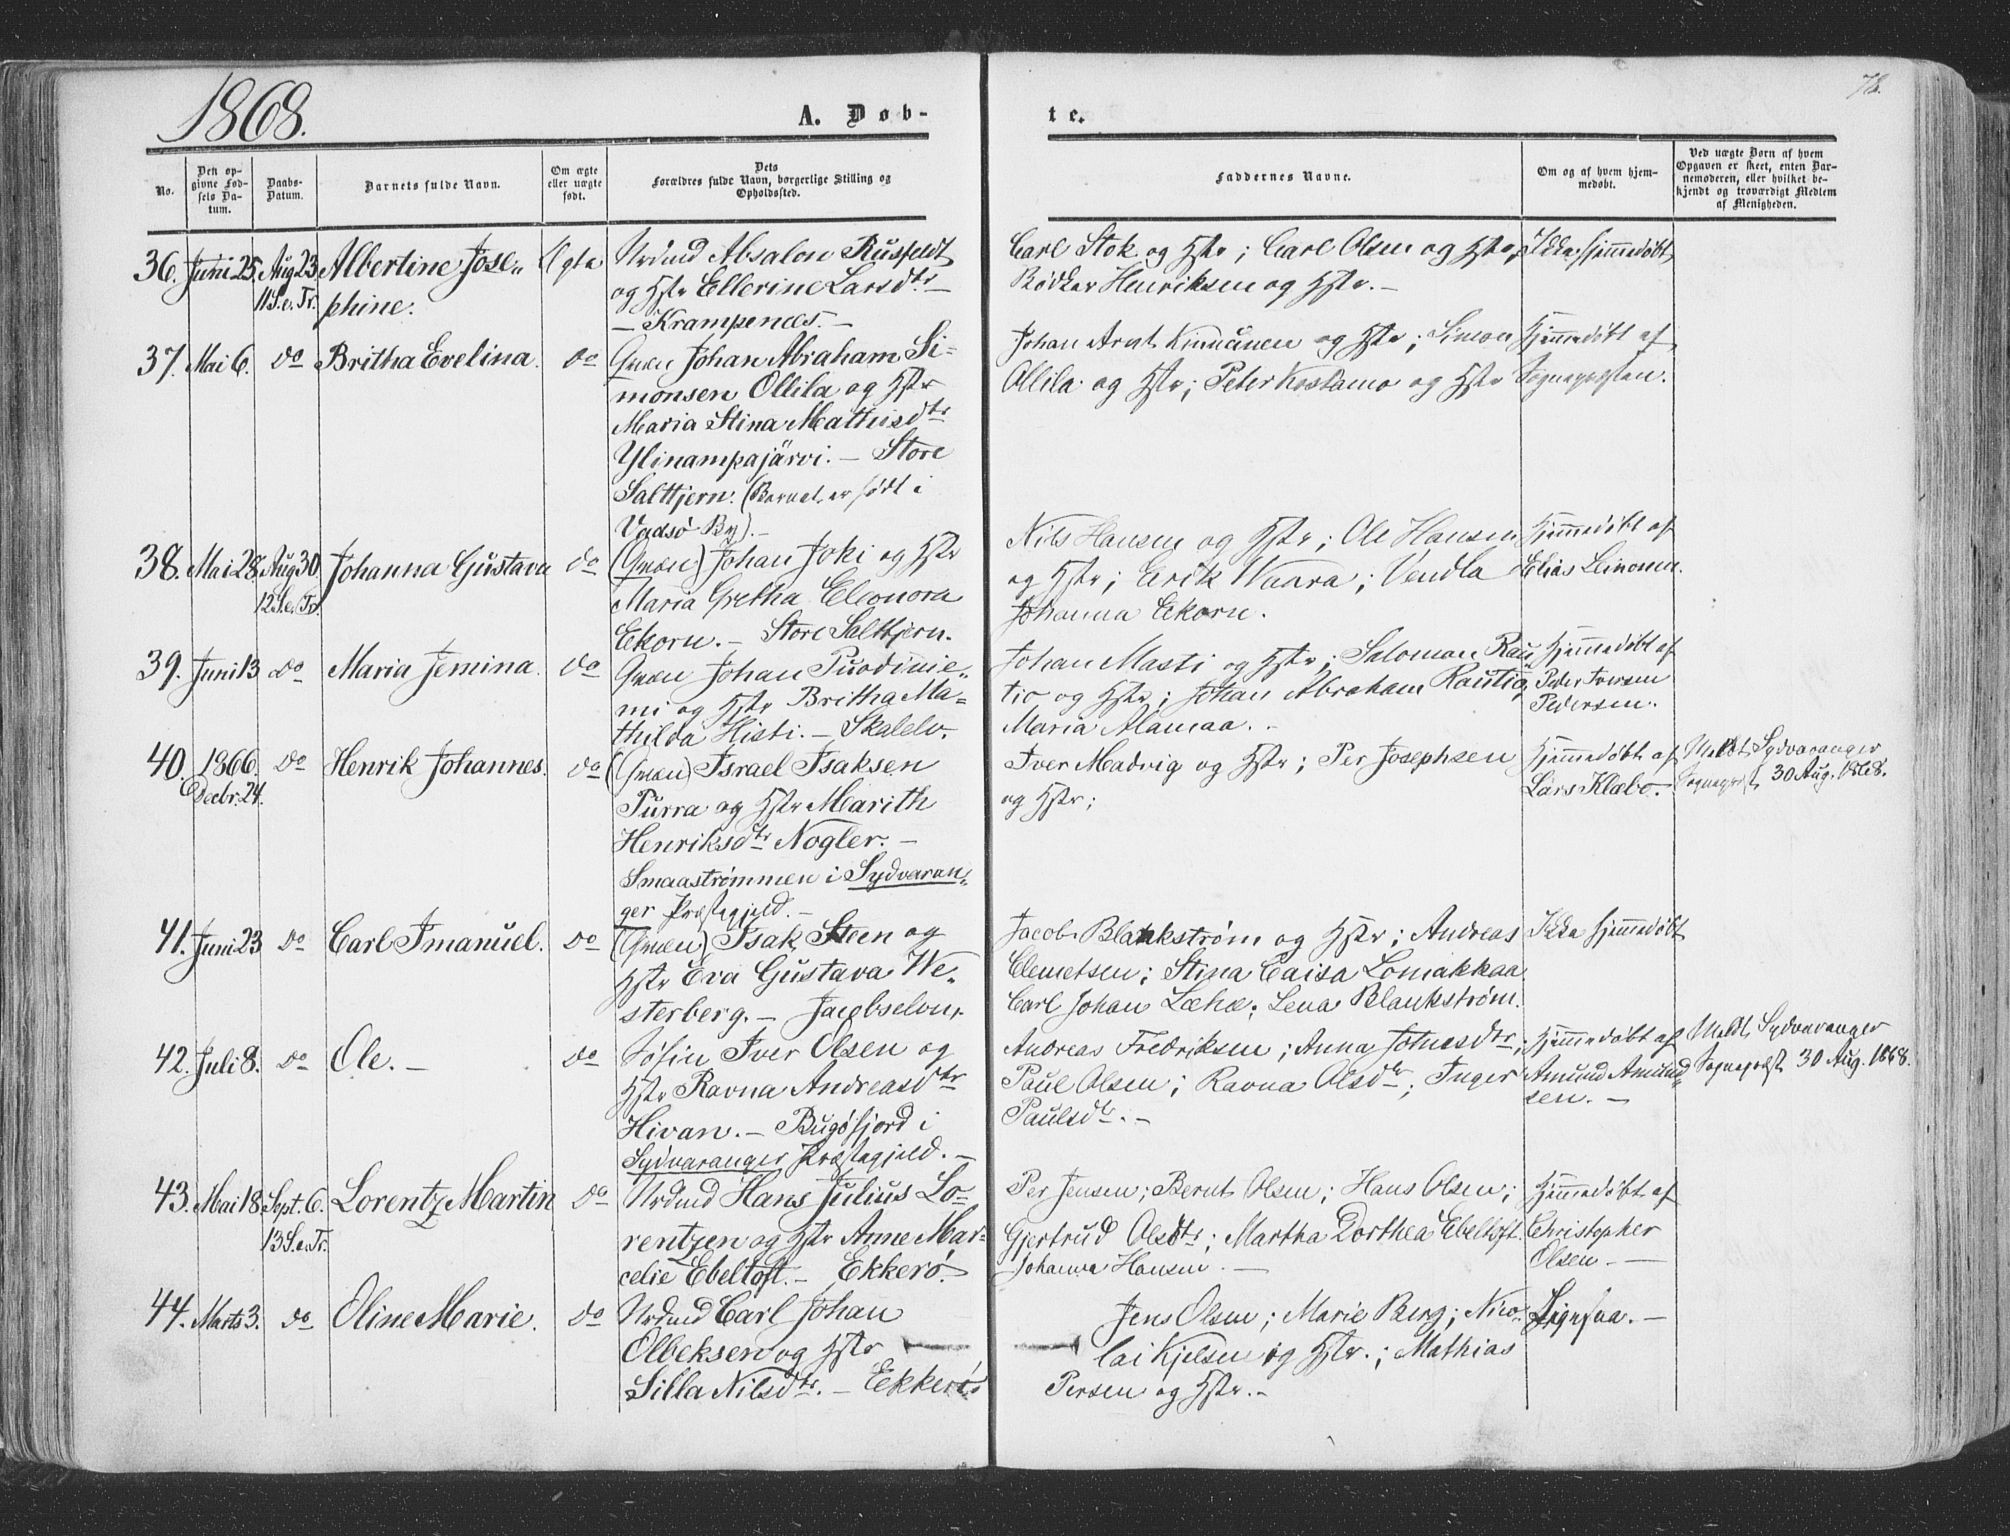 1868.
A. Døb-
te.
78.
No.
Den op-
givne Fød-
sels Da-
tum.
Daabs-
Datum.
Barnets fulde Navn.
Om ægte
eller uægte
født.
Dets
Forældres fulde Navn, borgerlige Stilling og
Opholdssted.
Faddernes Navne.
Om og af hvem hjem-
medøbt.
Ved uægte Børn af hvem
Opgaven er skeet, enten Bar-
nemoderen, eller hvilket be-
kjendt og troværdigt Medlem
af Menigheden.
36. Juni 25. Aug 23 Albertine Jose- Ægte
11 S.e.Tr. phine.
Nrdmd Absalon Rusfeldt
og Hstr Ellerine Larsdtr
— Krampenæs. —
Carl Stok og Hstr; Carl Olsen og Hstr;
Bødker Henriksen og Hstr. —
Ikke hjemmedøbt
37. Mai 6. do Britha Evelina. do
Qvæn Johan Abraham Si-
monsen Ollila og Hstr
Maria Stina Mathisdtr
Ylinampajärvi. — Store
Salttjern. (Barnet er født i
Vadsø By). —
Johan Arvt Kinnunen og Hstr; Simon
Ollila og Hstr; Peter Kostamo og Hstr
Hjemmedøbt af
Sognepresten.
38. Mai 28. Aug 30 Johanna Gustava do
12 S.e.Tr.
(Qvæn) Johan Joki og Hstr
Maria Gretha Eleonora
Ekorn. — Store Salttjern.
Nils Hansen og Hstr; Ole Hansen
og Hstr; Erik Waara; Vendla
Johanna Ekorn.
Hjemmedøbt af
Elias Leinonen.
39. Juni 13 do Maria Jemina. do
Qvæn Johan Puodinie-
mi og Hstr Britha Ma-
thilda Histi. — Skalelv.
Johan Masti og Hstr; Salomon Rau-
tio og Hstr; Johan Abraham Rautio,
Maria Alamaa. -
Hjemmedøbt af
Peder Iversen
Pedersen.
40. 1866. do Henrik Johannes. do
Decbr. 24.
(Qvæn) Israel Isaksen
Purra og Hstr Marith
Henriksdtr Nogler. —
Smaastrømmen i Sydvaran-
ger Præstegjeld. —
Iver Madvig og Hstr; Per Josephsen
og Hstr;
Hjemmedøbt af
Lars Klæbo.
Meldt Sydvaranger
Sogneprest 30 Aug. 1868.
41. Juni 23 do Carl Imanuel. do
(Qvæn) Isak Steen og
Hstr Eva Gustava We-
sterberg. — Jacobselven.
Jacob Blankstrøm og Hstr; Andreas
Clemetsen; Stina Caisa Lomakkaa
Carl Johan Læhæ; Lena Blankstrøm.
Ikke hjemmedøbt
42. Juli 8. do Ole. — do
Søfin Iver Olsen og
Hstr Ravna Andreasdtr
Hivan. — Bugøfjord i
Sydvaranger Præstegjeld. —
Andreas Fredriksen; Anna Johnesdtr;
Paul Olsen; Ravna Olsdtr; Inger
Paulsdtr. —
Hjemmedøbt af
Amund Amund-
sen. —
Meldt Sydvaranger
Sogneprest 30 Aug. 1868.
43. Mai 18. Sept. 6. Lorentz Martin do
13 S.e.Tr.
Nrdmd Hans Julius Lo-
rentzen og Hstr Anne Mar-
celie Ebeltoft. — Ekkerø.
Per Jensen; Bernt Olsen; Hans Olsen;
Gjertrud Olsdtr; Martha Dorthea Ebeltoft.
Johanna Hansen. —
Hjemmedøbt af
Christopher
Olsen. —
44. Marts 3. do Oline Marie. do
Nrdmd Carl Johan
Olbeksen og Hstr
Silla Nilsdtr. — Ekkerø
Jens Olsen; Marie Berg; Nico-
lai Kjelsen og Hstr.; Mathias
Persen og Hstr. —
Ligesaa. —